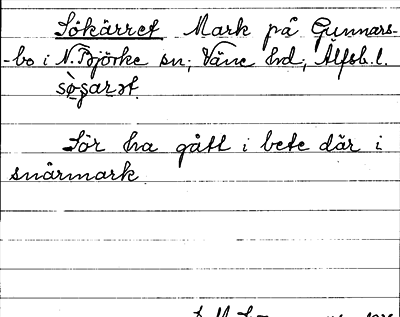 Sökärret Mark på Gunnars-
-bo i N. Björke sn, Väne hd, Älfsb. l.
Sör ha gått i bete där i
snårmark